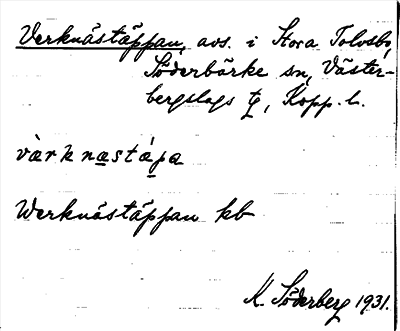 Verknästäppan, avs. i Stora Tolvsbo,
Söderbärke sn, Väster-
bergslags tg, Kopp. l.
vàrknastápa
Werknästäppan kb
K. Söderberg 1931.